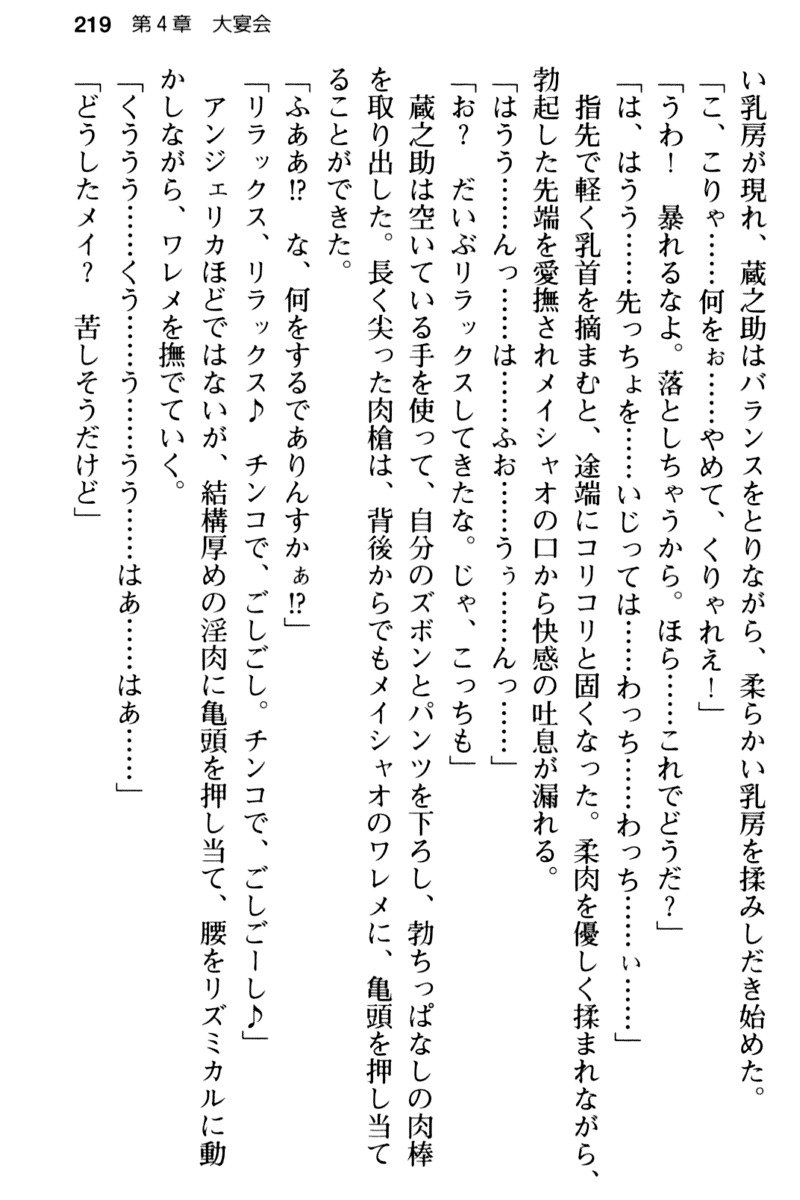 219 第4章 大宴会
い乳房が現れ、蔵之助はバランスをとりながら、柔らかい乳房を揉みしだき始めた。
「こ、こりゃ……何をぉ……やめて、くりゃれえ！」
「うわ！　暴れるなよ。落としちゃうから。ほら……これでどうだ？」
「は、はうう……先っちょを……いじっては……わっち……わっち……ぃ……」
　指先で軽く乳首を摘まむと、途端にコリコリと固くなった。柔肉を優しく揉まれながら、
勃起した先端を愛撫されメイシャオの口から快感の吐息が漏れる。
「はうう……んっ……は……ふお……うぅ……んっ……」
「お？　だいぶリラックスしてきたな。じゃ、こっちも」
　蔵之助は空いている手を使って、自分のズボンとパンツを下ろし、勃ちっぱなしの肉棒
を取り出した。長く尖った肉槍は、背後からでもメイシャオのワレメに、亀頭を押し当て
ることができた。
「ふああ!?　な、何をするでありんすかぁ!?」
「リラックス、リラックス♪　チンコで、ごしごし。チンコで、ごしごーし♪」
　アンジェリカほどではないが、結構厚めの淫肉に亀頭を押し当て、腰をリズミカルに動
かしながら、ワレメを撫でていく。
「くううう……くう……う……うう……はあ……はあ……」
「どうしたメイ？　苦しそうだけど」